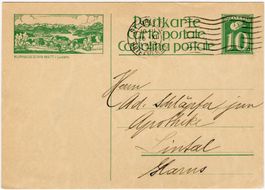 Postkarte
Carte postale
Cartolina postale
10
Herrn
Ad. Schläpfer jun
Apotheke
Lintal
Glarus